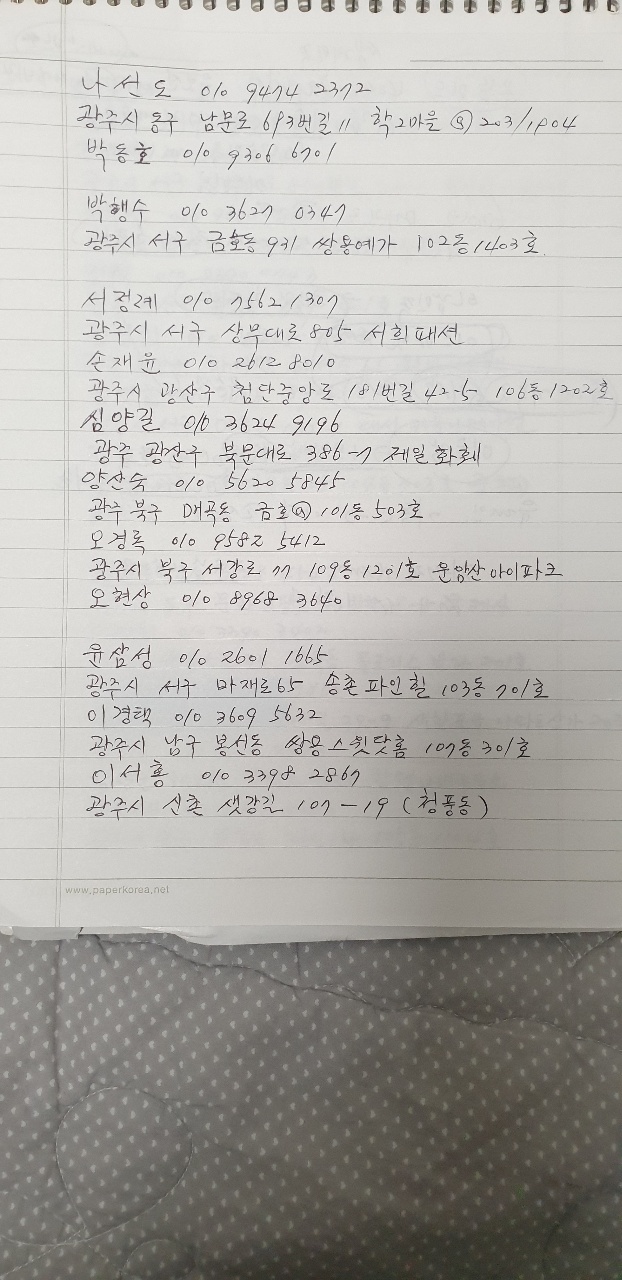 나선도 010 9474 2372
광주시 동구 남문로 693번길 11 학2마을 ⓐ 203/1904
박동호 010 9306 6701
박행수 010 3627 0347
광주시 서구 금호동 931 쌍용예가 102동 1403호
서정례 010 7562 1307
광주시 서구 상무대로 805 서희패션
손재윤 010 2612 8010
광주시 광산구 첨단중앙로 181번길 42-5 106동 1202호
심양길 010 3624 9196
광주 광산구 북문대로 386-7 제일화훼
양산숙 010 5620 5845
광주 북구 매곡동 금호ⓐ 101동 503호
오경록 010 9582 5412
광주시 북구 서강로 77 109동 1201호 운암산아이파크
오현상 010 8968 3640
윤삼성 010 2601 1665
광주시 서구 마재로65 송촌파인힐 103동 701호
이경택 010 3609 5632
광주시 남구 봉선동 쌍용스윗닷홈 107동 301호
이서홍 010 3398 2867
광주시 신촌 샛강길 107-19 (청풍동)
www.paperkorea.net